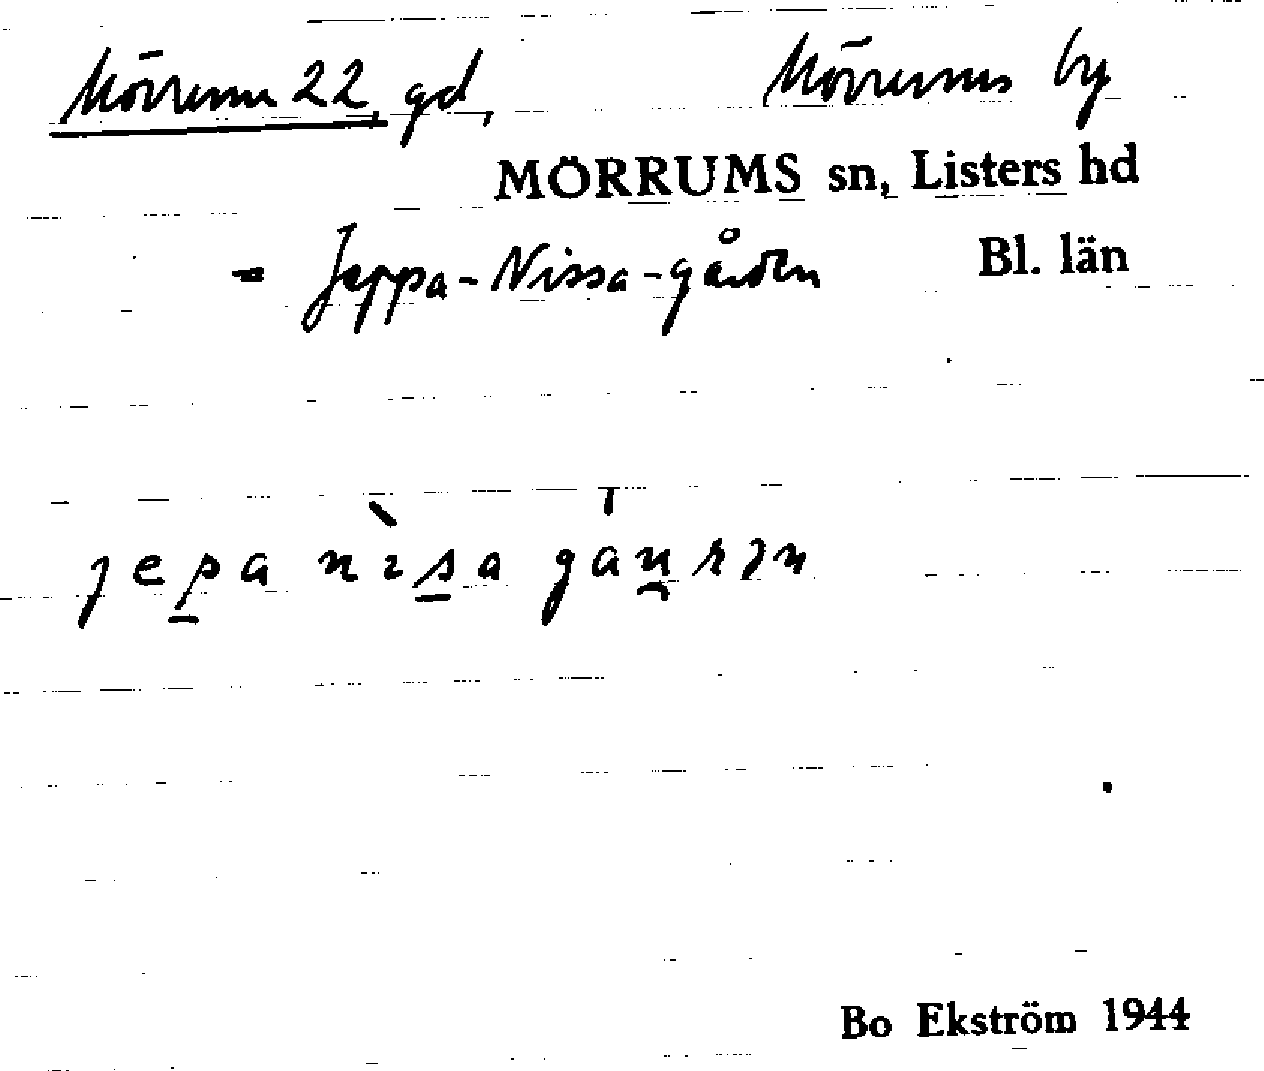 Mörrum 22, gd, Mörrums by
MÖRRUMS sn, Listers hd
= Jeppa-Nissa-gården Bl. län
jepa nìsa gau̯rən
Bo Ekström 1944